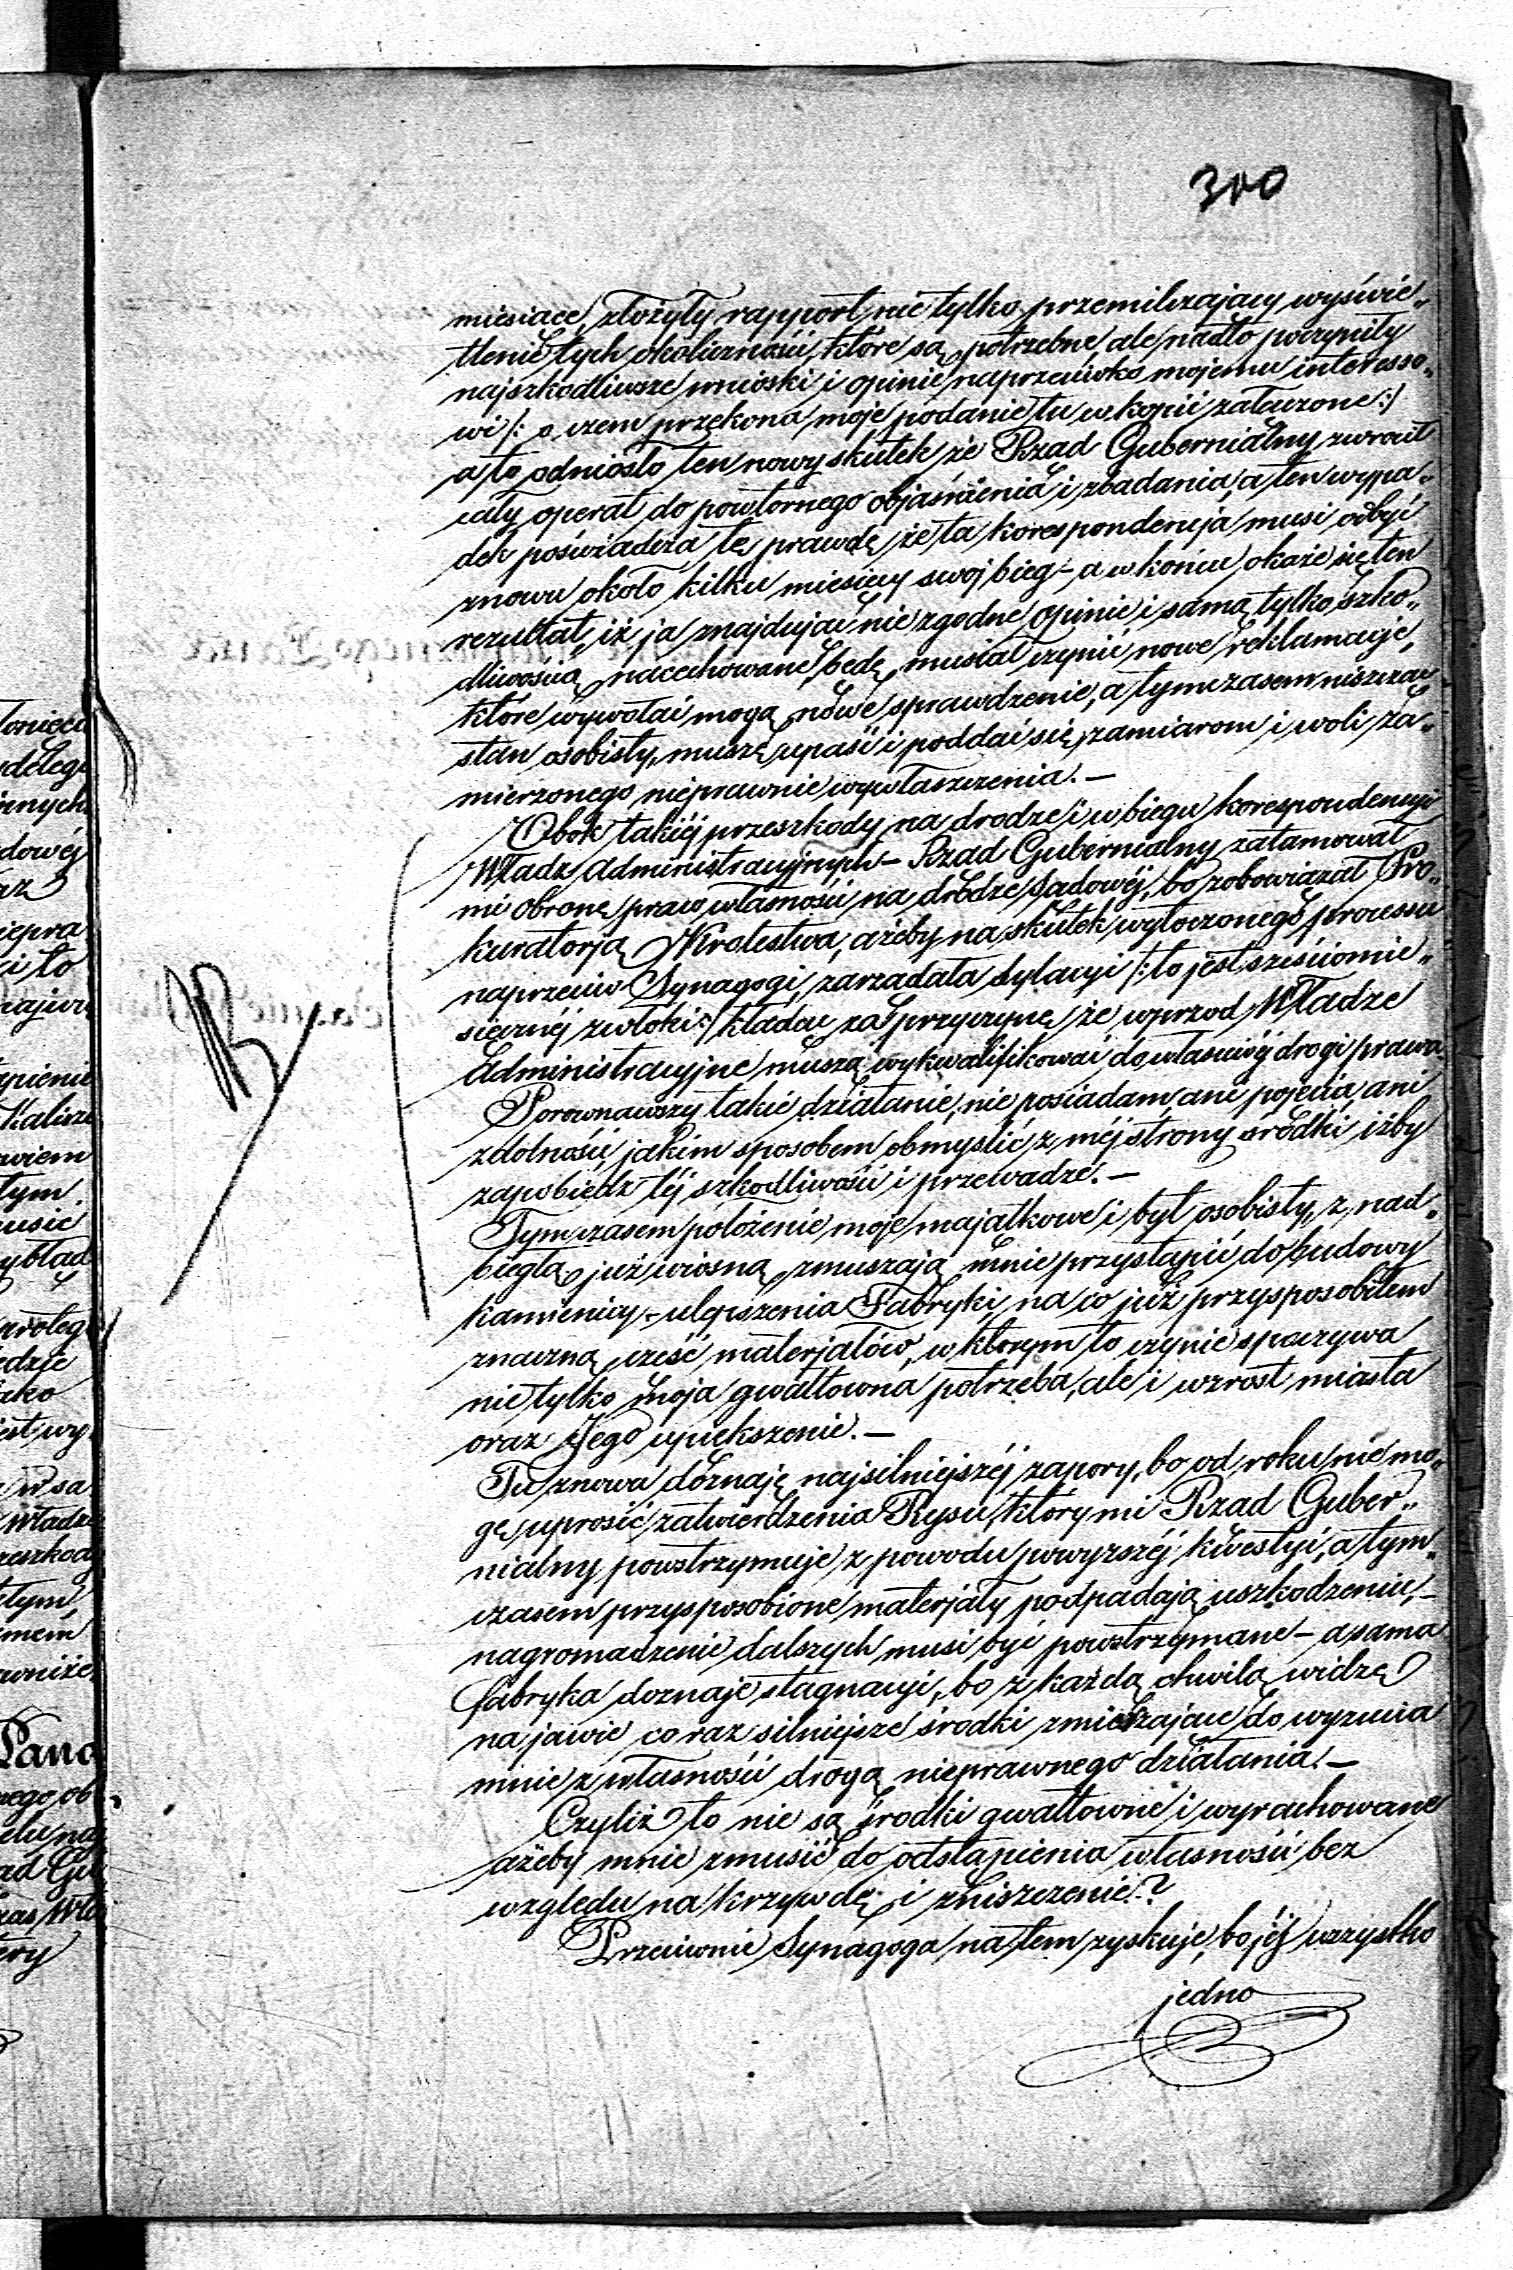 300
miesiące, złożyły rapport nie tylko przemilczający wyświe„
tlenie tych okoliczności, które są potrzebne ale nadto poczyniły
najszkodliwsze wnioski i opinie naprzeciwko mojemu interesso„
wi /: o czem przekona moje podanie tu w kopii załączone :/
a to odniosło ten nowy skutek że Rząd Gubernialny zwrócił
cały operat do powtornego objaśnienia i zbadania, a ten wypa„
dek poświadcza tę prawdę że ta korespondencja musi odbyć
znowu około kilku miesięcy swoj bieg – a w końcu okaże się ten
rezultat, iż ja znajdując nie zgodne opinie i samą tylko szko„
dliwością nacechowane, będę musiał czynić nowe reklamacje,
które wywołać mogą nowe sprawdzenie, a tymczasem niszcząc
stan osobisty, muszę upaść i poddać się zamiarom i woli za„
mierzonego nieprawnie wywłaszczenia. –
Obok takiéj przeszkody na drodze i w biegu korespondencyi
Władz Administracyjnych – Rząd Gubernialny zatamował
mi obronę praw własności na drodze Sądowéj, bo zobowiązał Pro„
kuratorją Krolestwa, ażeby na skutek wytoczonego processu
naprzeciw Synagogi, zarządała dylacyi /: to jest sześciomie„
sięcznéj zwłoki :/ kładąc za przyczynę że wprzod Władze
Administracyjne muszą wykwalifikować do własciwéj drogi prawa.
Porownawszy takie działanie, nie posiadam ani pojęcia, ani
zdolności, jakim sposobem obmyslić z méj strony środki iżby
zapobiedz téj szkodliwości i przewadze. –
Tymczasem położenie moje majątkowe i byt osobisty, z nad„
biegłą już wiosną zmuszają mnie przystąpić do budowy
kamienicy – ulepszenia Fabryki, na co już przysposobiłem
znaczną część materjałów, w ktorym to czynie spoczywa
nie tylko moja gwałtowna potrzeba, ale i wzrost miasta
oraz Jego upiększenie. –
Tu znowu doznaję najsilniejszéj zapory, bo od roku nie mo„
gę uprosić zatwierdzenia Rysu, który mi Rząd Guber„
nialny powstrzymuje z powodu powyższéj kwestyi, a tym„
czasem przysposobione materjały podpadają uszkodzeniu, –
nagromadzenie dalszych musi być powstrzymane – a sama
fabryka doznaje stagnacyi, bo z każdą chwilą widzę
na jawie co raz silniejsze środki zmierzające do wyzucia
mnie z własności drogą nieprawnego działania. –
Czyliż to nie są środki gwałtowne i wyrachowane
ażeby mnie zmusić do odstąpienia własności bez
względu na krzywdę i zniszczenie?
Przeciwnie Synagoga na tem zyskuje, bo jéj wszystko
jedno